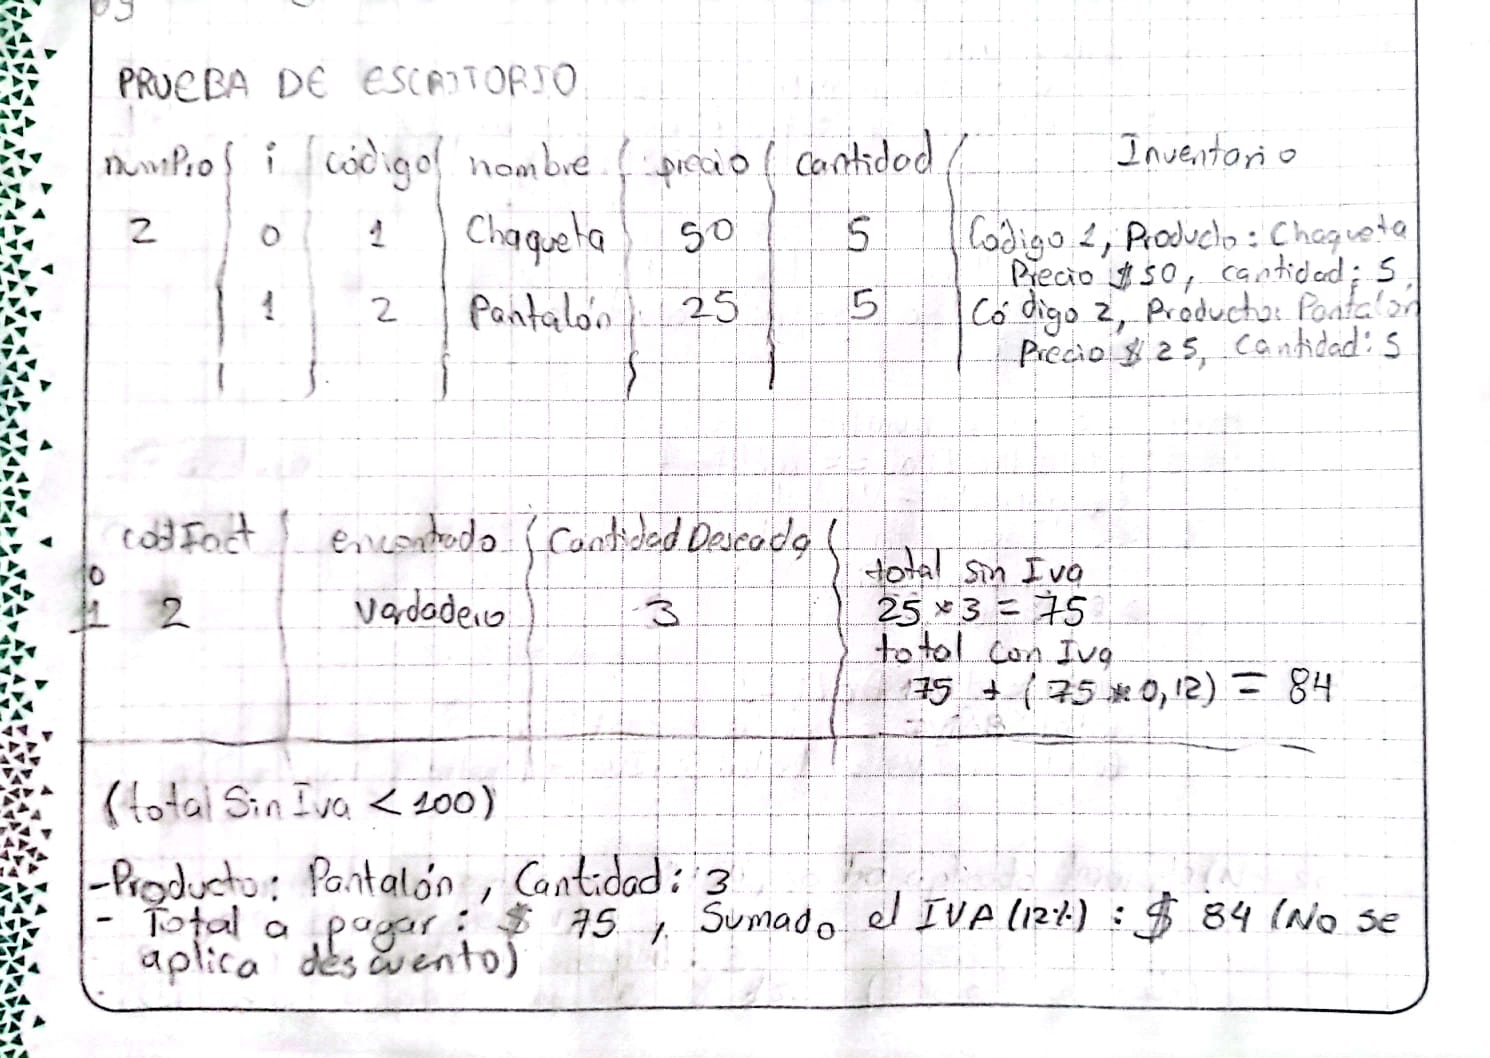 PRUEBA DE ESCRITORIO
numPro i código nombre precio cantidad Inventario
2 0 1 Chaqueta 50 5 Código 1, Producto: Chaqueta
Precio $50, cantidad: 5,
1 2 Pantalón 25 5 Código 2, Producto: Pantalon
Precio $ 25, Cantidad: 5
codFact encontrado Cantidad Deseada
0 total sin Iva
1 2 Verdadero 3 25 * 3 = 75
total con Iva
75 + (75 * 0,12) = 84
(total Sin Iva < 100)
-Producto: Pantalón, Cantidad: 3
- Total a pagar: $ 75, Sumado el IVA (12%) : $ 84 (No se
aplica descuento)